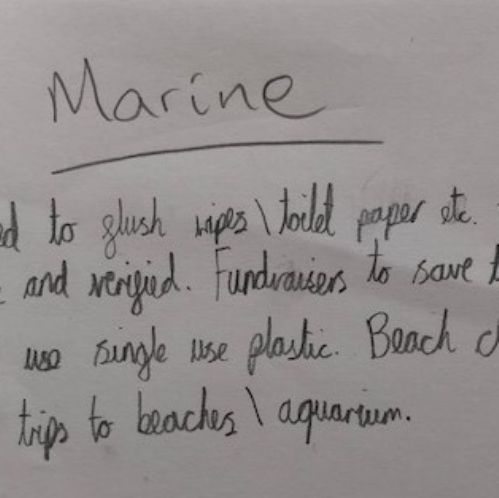 Marine
to flush wipes \ toilet paper etc.
and verified. Fundraisers to save
use single use plastic. Beach
trips to beaches \ aquarium.